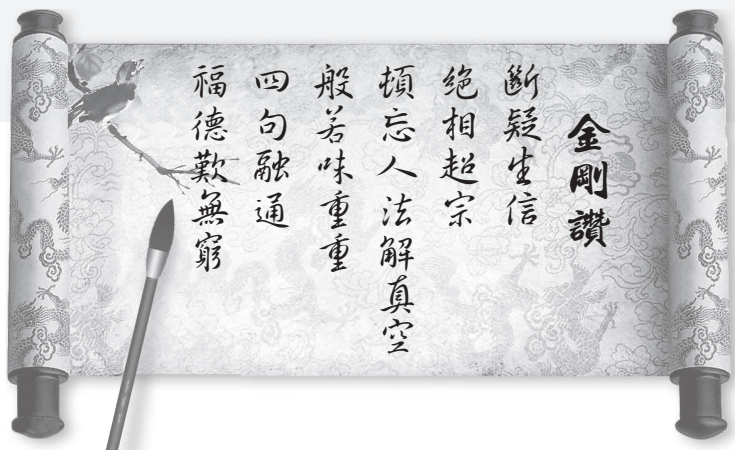 金剛讚
斷疑生信
絕相超宗
頓忘人法解真空
般若味重重
四句融通
福德歎無窮